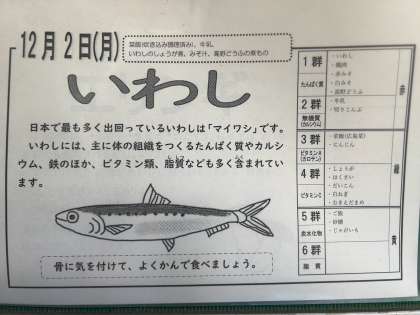 12月2日(月)
菜飯(炊き込み調理済み)、牛乳
いわしのしょうが煮、みそ汁、高野どうふの煮もの
いわし
日本で最も多く出回っているいわしは「マイワシ」です。
いわしには、主に体の組織をつくるたんぱく質やカルシ
ウム、鉄のほか、ビタミン類、脂質なども多く含まれてい
ます。
骨に気を付けて、よくかんで食べましょう。
1群
たんぱく質
・いわし
・鶏肉
・赤みそ
・白みそ
・高野どうふ
赤
2群
無機質
(カルシウム)
・牛乳
・切りこんぶ
3群
ビタミンA
(カロテン)
・菜飯(広島菜)
・にんじん
緑
4群
ビタミンC
・しょうが
・はくさい
・だいこん
・白ねぎ
・むきえだまめ
5群
炭水化物
・ご飯
・砂糖
・じゃがいも
黄
6群
脂質